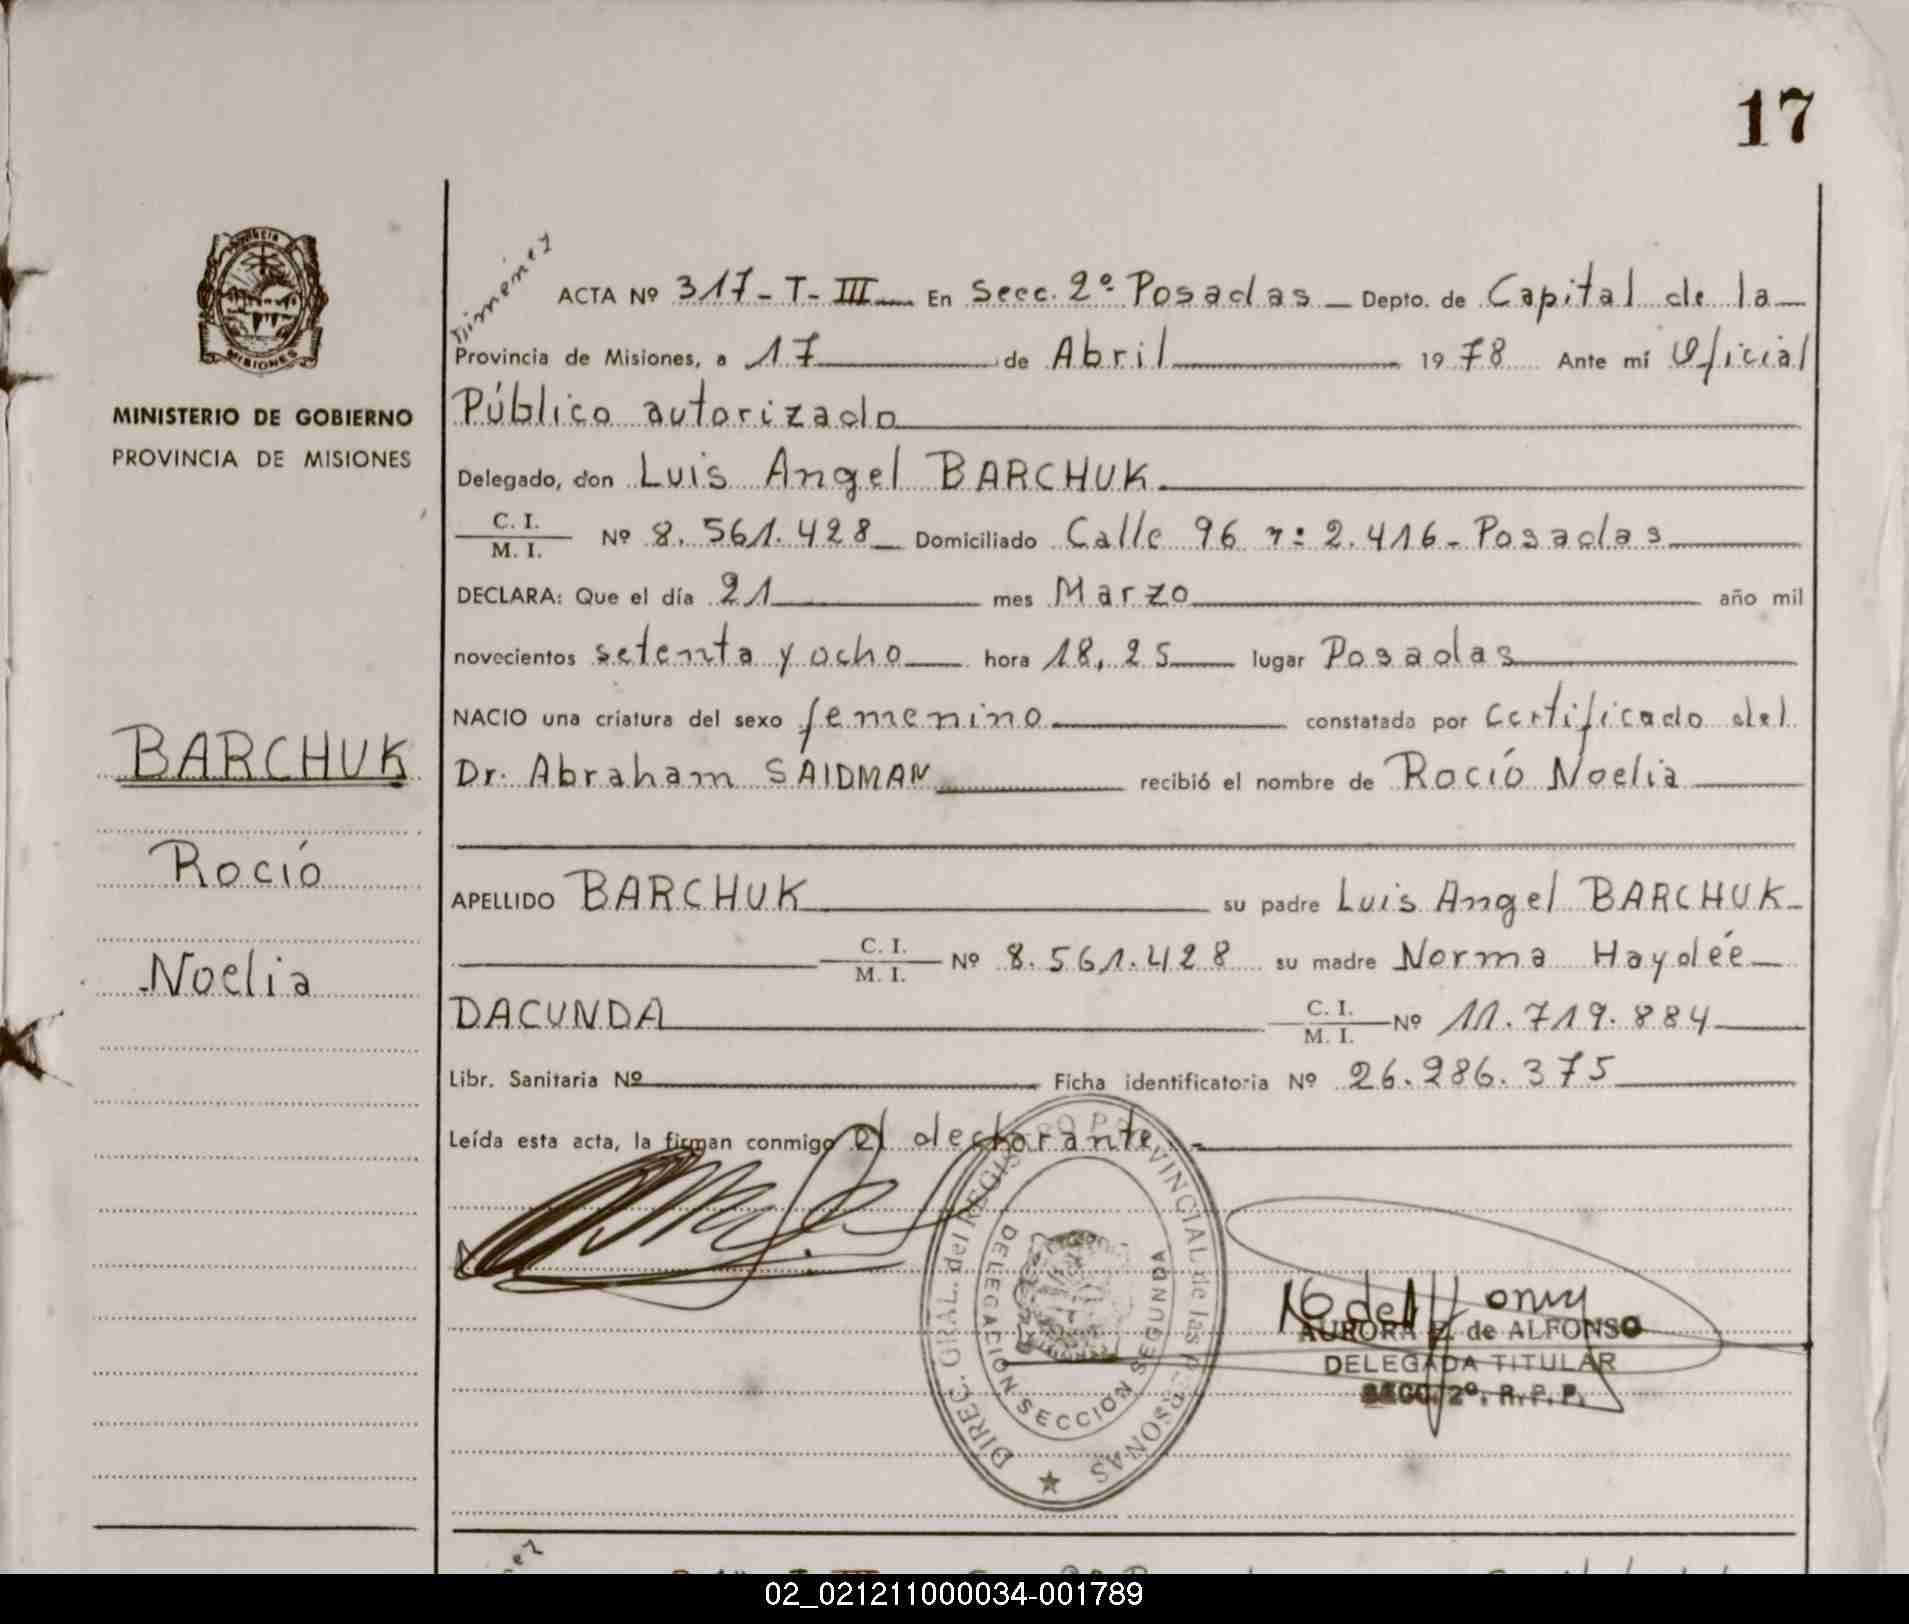 17
Provincia
MISIONES
MINISTERIO DE GOBIERNO
PROVINCIA DE MISIONES
BARCHUK
Rocío
Noelia
Jimenez
ACTA Nº 317-T-III En Secc. 2º Posadas Depto. de Capital de la
Provincia de Misiones, a 17 de Abril 1978 Ante mí Oficial
Público autorizado
Delegado, don Luis Angel BARCHUK
C. I.
M. I. Nº 8.561.428 Domiciliado Calle 96 nº 2.416-Posadas
DECLARA: Que el día 21 mes Marzo año mil
novecientos setenta y ocho hora 18,25 lugar Posadas
NACIO una criatura del sexo femenino constatada por certificado del
Dr. Abraham SAIDMAN recibió el nombre de Rocío Noelia
APELLIDO BARCHUK su padre Luis Angel BARCHUK
C. I.
M. I. Nº 8.561.428 su madre Norma Haydée
DACUNDA C. I.
M. I. Nº 11.719.884
Libr. Sanitaria Nº Ficha identificatoria Nº 26.286.375
Leída esta acta, la firman conmigo el declarante.-
DIREC. GRAL. del REGISTRO PROVINCIAL de las PERSONAS
DELEGACION SECCION SEGUNDA
AURORA Z. de ALFONSO
DELEGADA TITULAR
SECC. 2º. R. P. P.
02_021211000034-001789